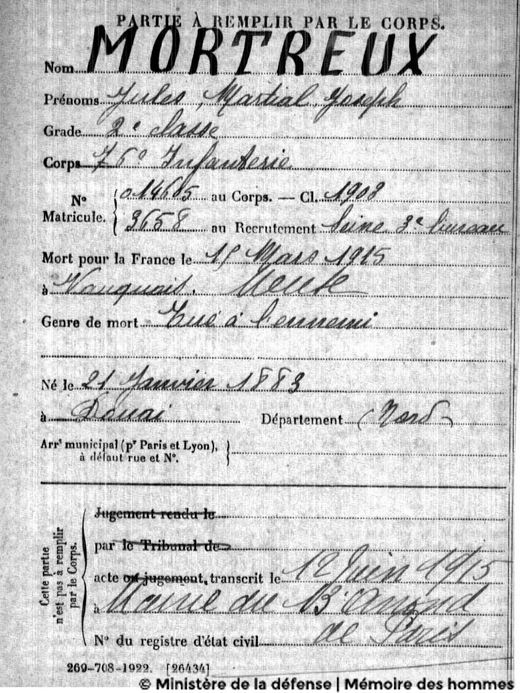 PARTIE À REMPLIR PAR LE CORPS.
Nom MORTREUX
Prénoms Jules, Martial, Joseph
Grade 2e classe
Corps 76e Infanterie
N° Matricule. { 014605 au Corps. — Cl. 1903
3658 au Recrutement Seine 3e bureau
Mort pour la France le 15 Mars 1915
à Vauquois. Meuse
Genre de mort Tué à l'ennemi
Né le 21 Janvier 1883
à Douai Département (Nord)
Arrt municipal (pr Paris et Lyon), à défaut rue et N°. }
Cette partie n'est pas à remplir par le Corps.
Jugement rendu le
par le Tribunal de
acte ou jugement, transcrit le 12 Juin 1915
à Mairie du 13e Arrond
de Paris
N° du registre d'état civil
269-708-1922. [26434]
© Ministère de la défense | Mémoire des hommes